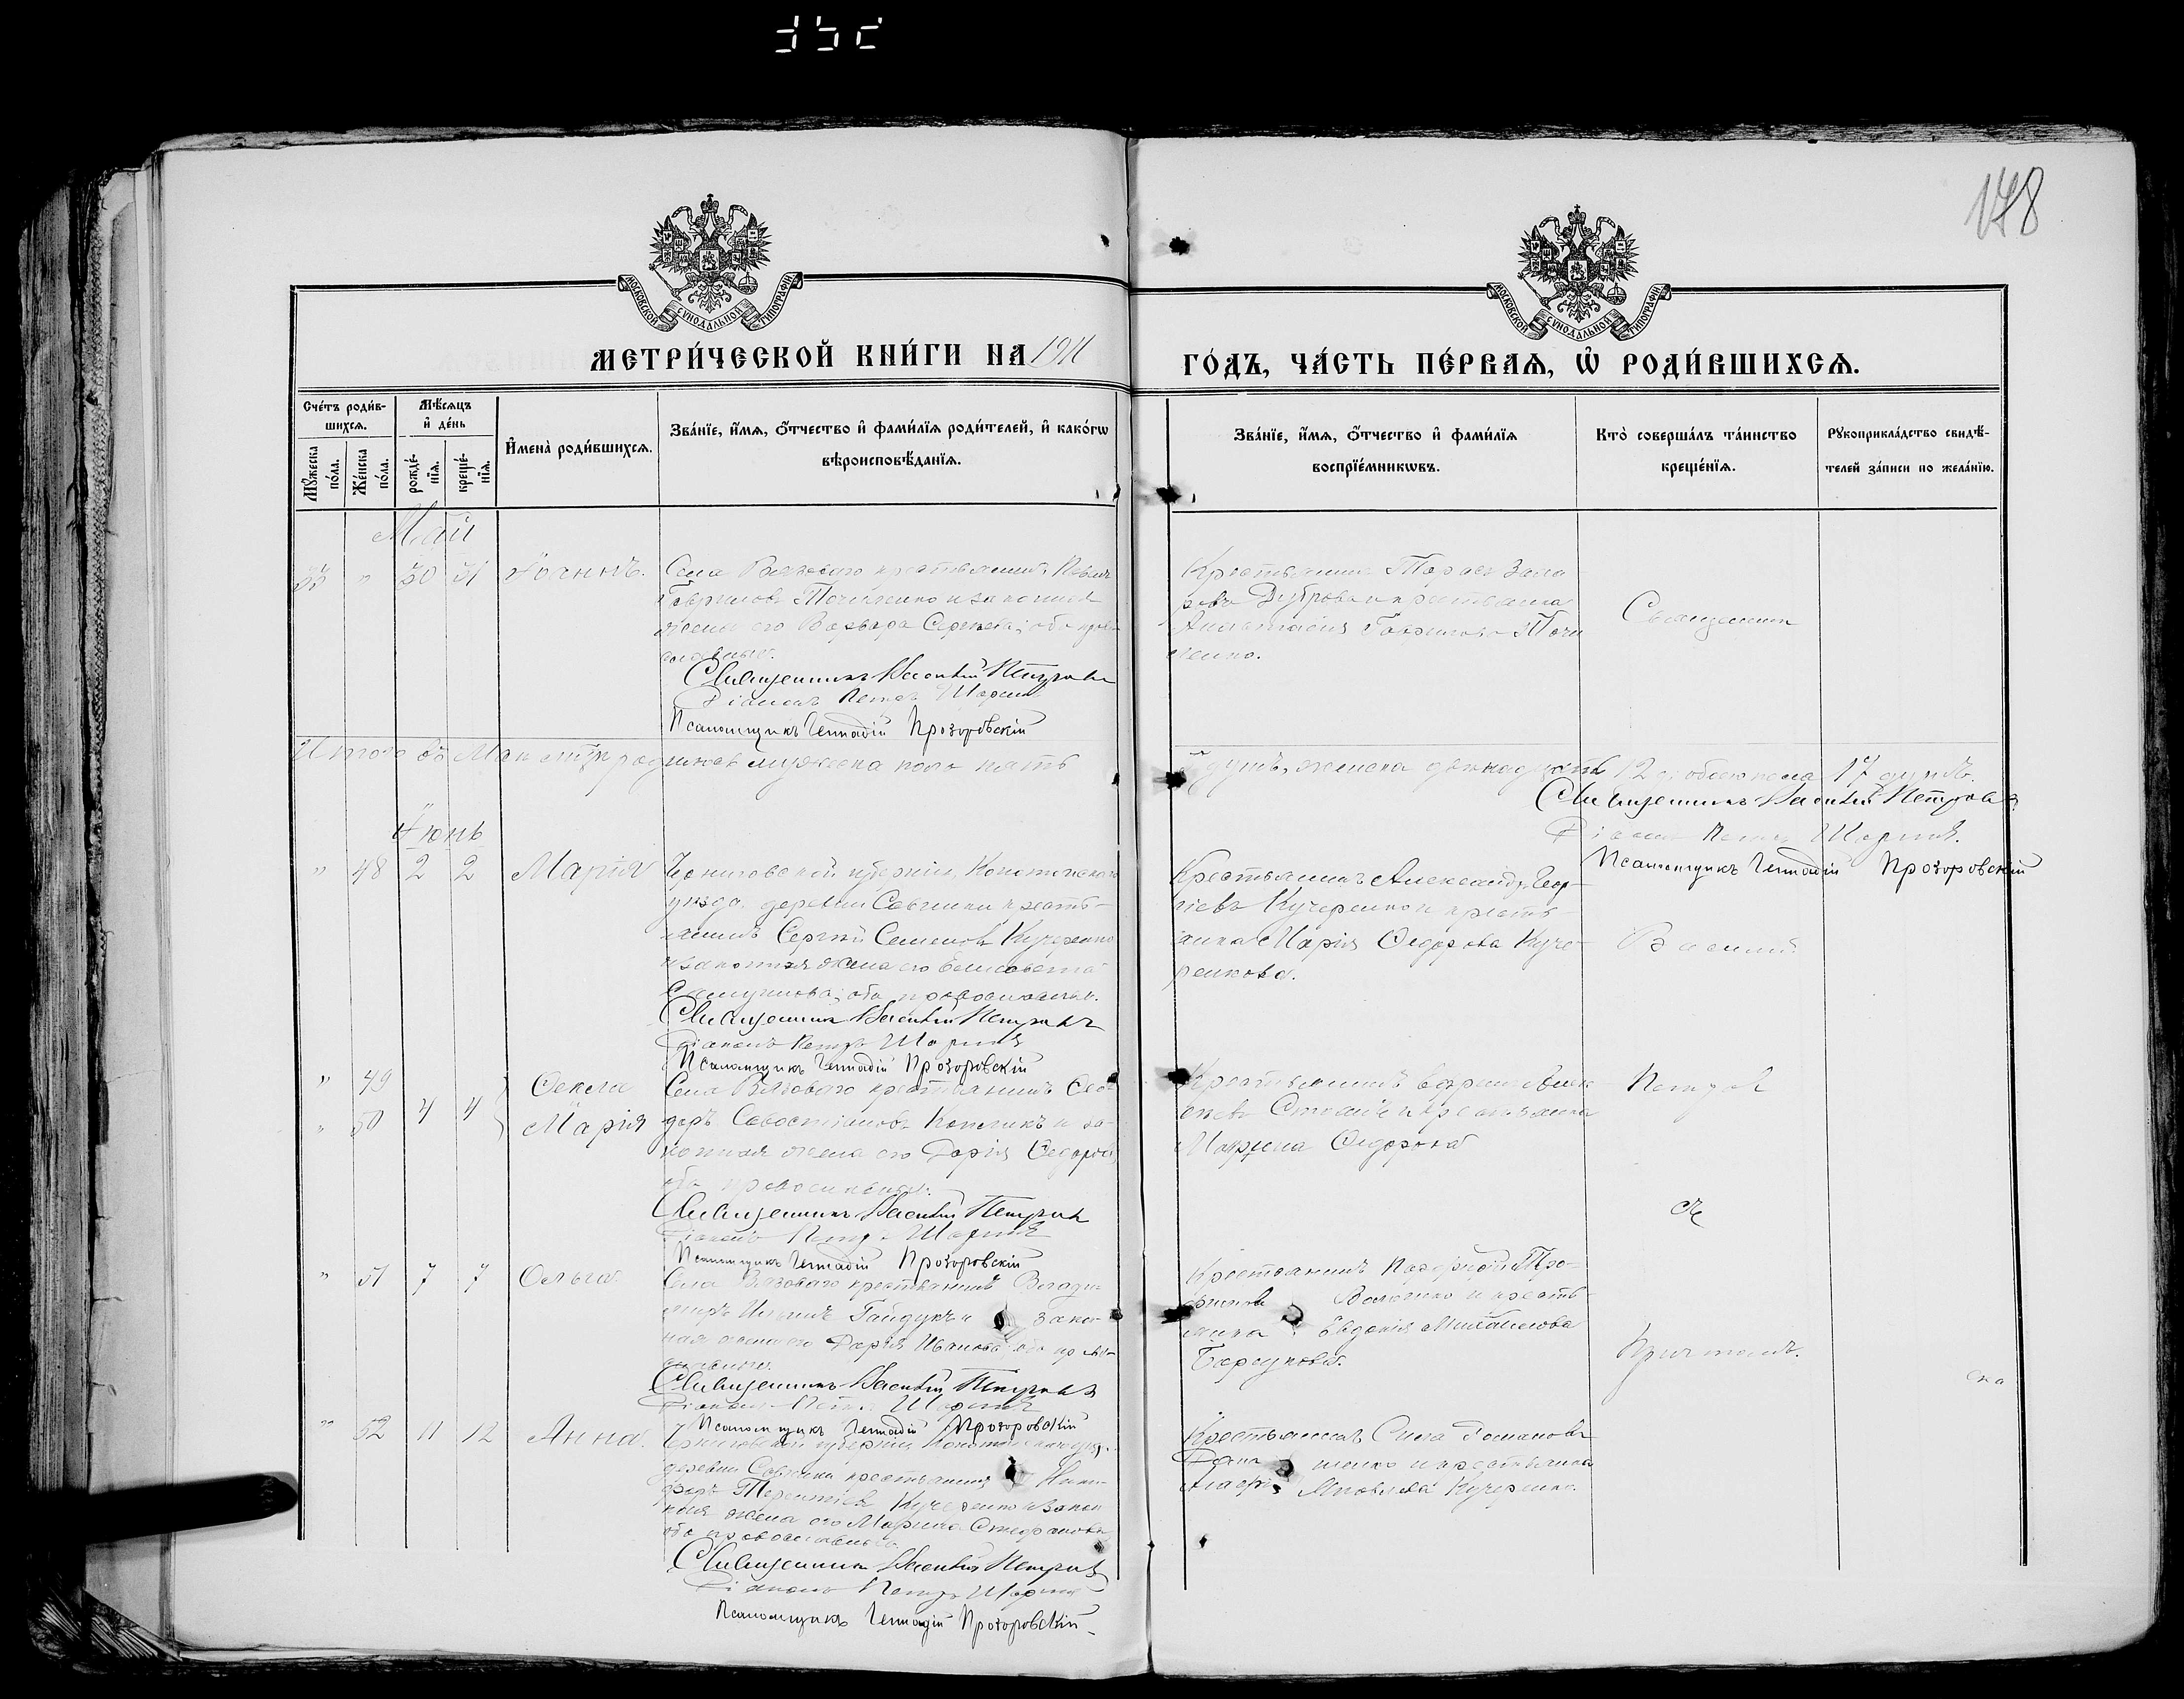 178
МОСКОВСКОЙ СУНОДАЛЬНОЙ ТИПОГРАФІИ
МОСКОВСКОЙ СУНОДАЛЬНОЙ ТИПОГРАФІИ
МЕТРИ́ЧЕСКОЙ КНИ́ГИ НА 1911 ГО́ДЪ, ЧА́СТЬ ПЕ́РВАѦ, Ѡ҆ РОДИ́ВШИХСѦ.
Сче́тъ роди́в-
шихсѧ.
Мꙋ́жеска по́ла.
Же́нска по́ла.
Мѣ́сѧцъ
и҆ де́нь
рожде́-
нїѧ.
креще́-
нїѧ.
И҆мена̀ роди́вшихсѧ.
Зва́нїе, и҆́мѧ, ѻ҆́тчество и҆ фами́лїѧ роди́телей, и҆ како́гѡ
вѣроисповѣ́данїѧ.
Зва́нїе, и҆́мѧ, ѻ҆́тчество и҆ фами́лїѧ
воспрїе́мникѡвъ.
Кто̀ соверша́лъ та́инство
креще́нїѧ.
Рꙋкоприкла́дство свидѣ́-
телей за́писи по жела́нїю.
Май
35 " 30 31 Іоаннъ.
Села Вязоваго крестьянинъ
Гаврилов Точиленко и законная
жена его Варвара Сергѣева; оба право-
славные.
Священникъ Василій Петровъ
Діаконъ Петръ
Псаломщикъ Геннадій Прозоровскій
Крестьянинъ Тарас Заха-
ровъ Дуброва и крестьянка
Анастасія Гаврилова Точи
ленко.
Священник
Итого въ Маѣ родилось мужеска пола пять
душъ, женска двѣнадцать 12 а обоего пола 17 душъ.
Священникъ Василій Петровъ
Діаконъ Петръ
Псаломщикъ Геннадій Прозоровскій
Іюнь
" 48 2 2 Марія
Черниговской губерніи, Конотопскаго
уѣзда деревни Савинки кресть-
янинъ Сергій Семеновъ Кучеренко
и законная жена его Елисавета
оба православные.
Священникъ Василій Петровъ
Діаконъ Петръ
Псаломщикъ Геннадій Прозоровскій
Крестьянинъ Александръ Геор-
гіевъ Кучеренко и кресть-
янка Марія Ѳедорова Куче-
ренкова.
Василій
" 49
" 50 4 4
Ѳекла
Марія
Села Вязоваго крестьянинъ Ѳео-
доръ Севостіановъ и за-
конная жена его Дарія Ѳедорова
оба православные.
Священникъ Василій Петровъ
Діаконъ Петръ
Псаломщикъ Геннадій Прозоровскій
Крестьянинъ
и крестьянка
Марина Ѳедорова
Петровъ
съ
" 51 7 7 Ольга
Села Вязоваго крестьянинъ Влади-
миръ Ильинъ Гайдукъ и закон-
ная жена его Дарія Иванова оба право-
славные.
Священникъ Василій Петровъ
Діаконъ Петръ
Псаломщикъ Геннадій Прозоровскій
Крестьянинъ Порфирій Тро-
фимовъ и кресть-
янка Евдокія Михайлова
Барсукова.
Причтомъ.
" 52 11 12 Анна
Черниговской губерніи Конотопскаго уѣз.
деревни Савинки крестьянинъ Ники-
форъ Терентіевъ Кучеренко и закон
ная жена его Марина Стефанова
оба православные.
Священникъ Василій Петровъ
Діаконъ Петръ
Псаломщикъ Геннадій Прозоровскій
Крестьянинъ Сила Романовъ
и крестьянка
Яковлева Кучеренко.